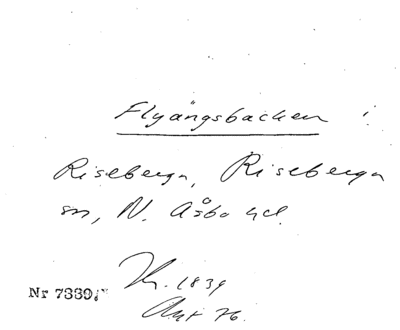 Flyängsbacken
Riseberga, Riseberga
sn, N. Åsbo hd.
1839
Nr 7339
Akt 76.